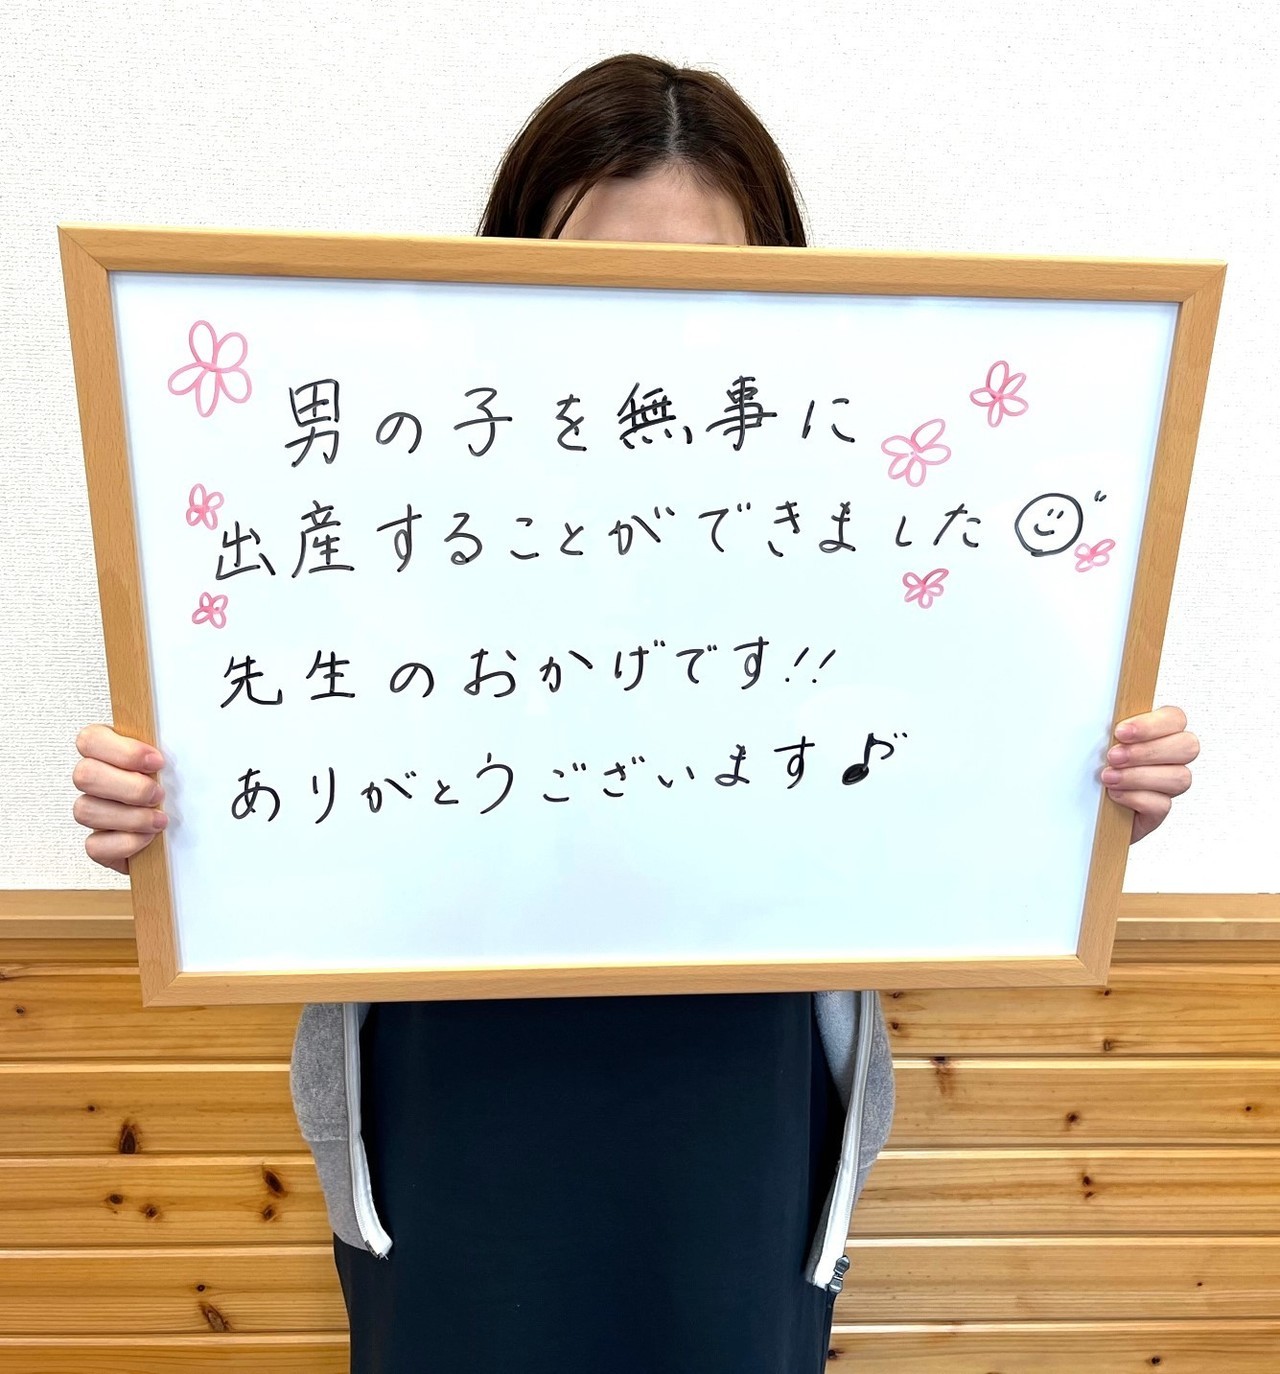 男の子を無事に
出産することができました
先生のおかげです!!
ありがとうございます♪